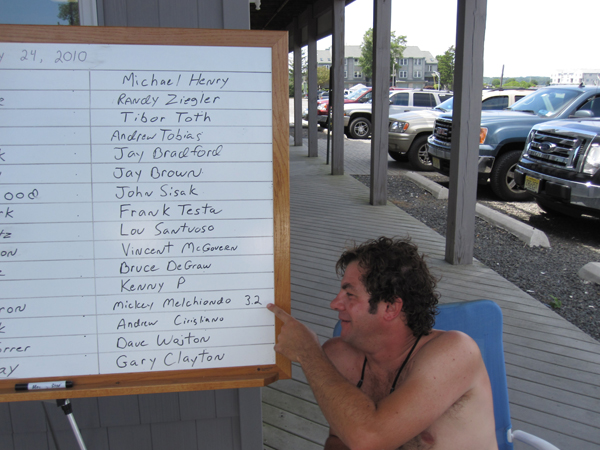 24, 2010
Michael Henry
Randy Ziegler
Tibor Toth
Andrew Tobias
Jay Bradford
Jay Brown
John Sisak
Frank Testa
Lou Santuoso
Vincent McGovern
Bruce DeGraw
Kenny P
Mickey Melchiondo 3.2
Andrew Cirigliano
Dave Wajton
Gary Clayton